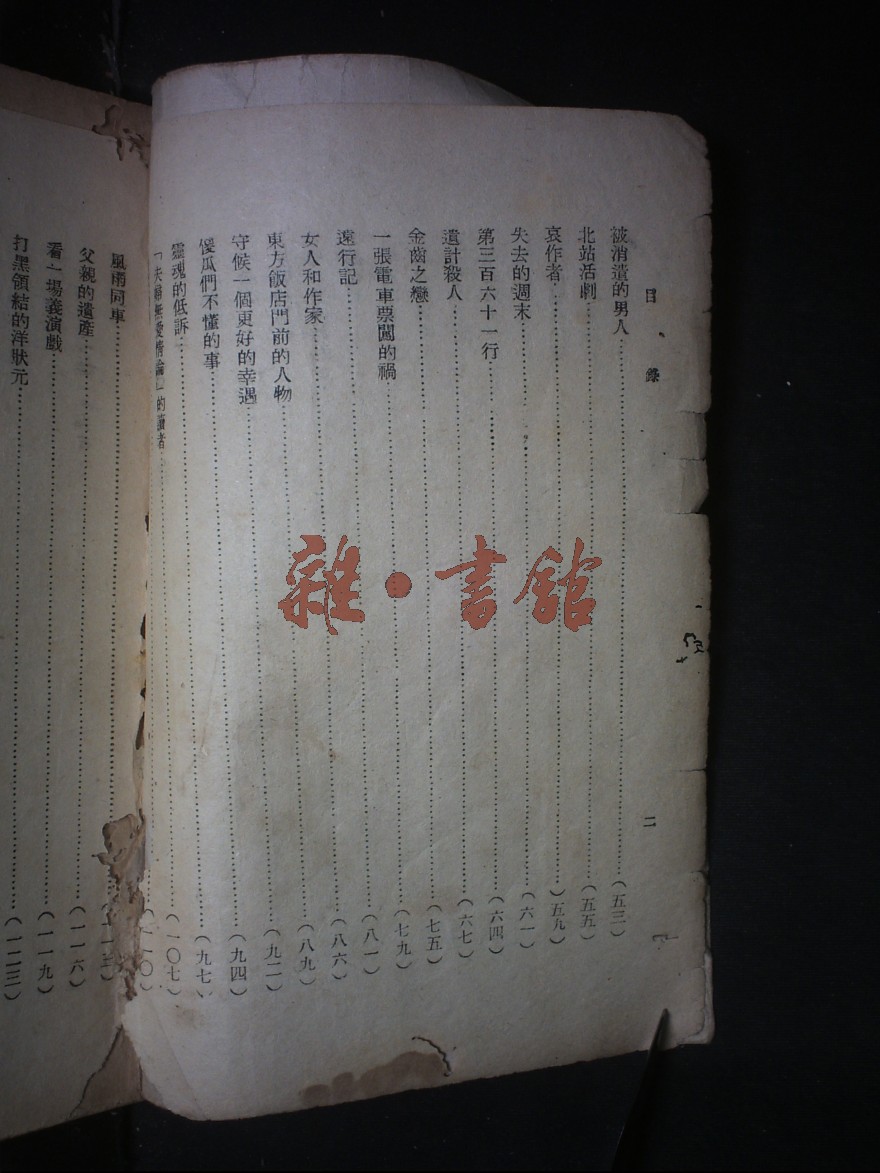 目錄
二
被消遣的男人(五三)
北站活劇(五五)
哀作者(五九)
失去的週末(六一)
第三百六十一行(六四)
遺計殺人(六七)
金齒之戀(七五)
一張電車票闖的禍(七九)
遠行記(八一)
女人和作家(八六)
東方飯店門前的人物(八九)
守候一個更好的幸遇(九二)
傻瓜們不懂的事(九四)
靈魂的低訴(九七)
「夫婦無愛情論」的讀者(一〇七)
風雨同車(一一三)
父親的遺產(一一六)
看一場義演戲(一一九)
打黑領結的洋狀元(一二三)
雜•書館